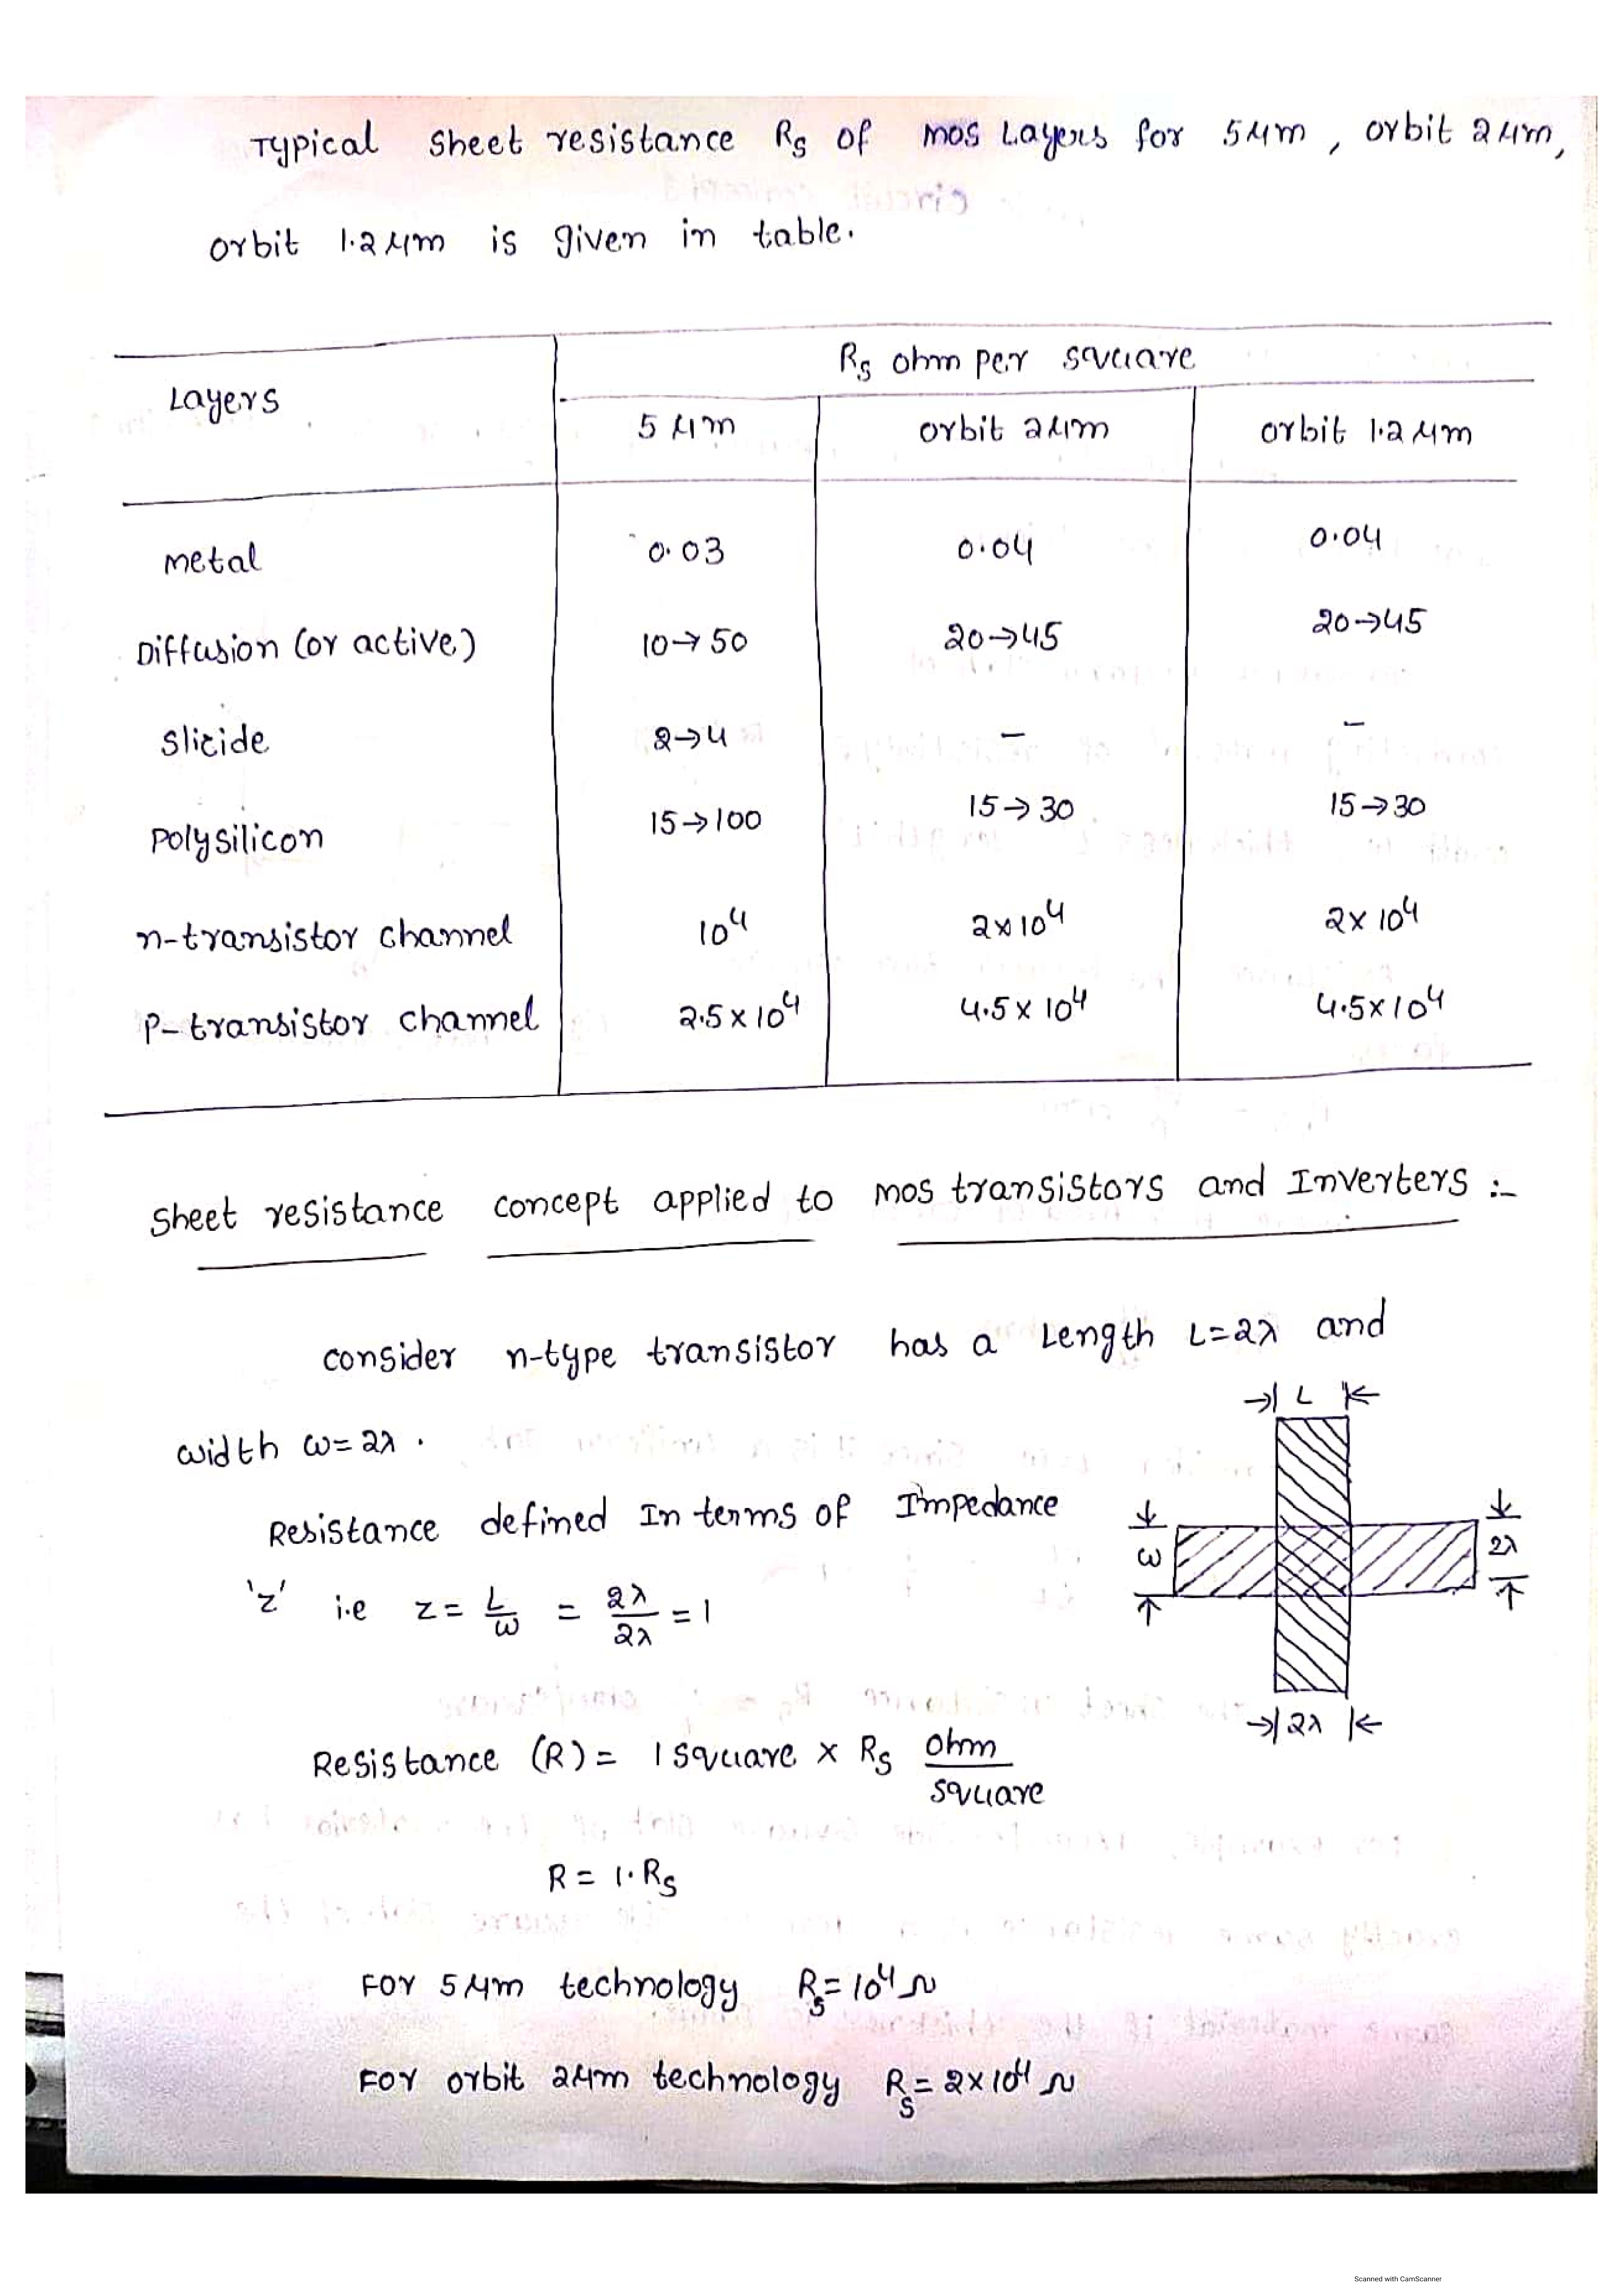 Typical sheet resistance Rs of mos Layers for 5 μm, orbit 2 μm,
orbit 1.2 μm is given in table.
Layers
Rs ohm per square
5 μm orbit 2μm orbit 1.2 μm
metal 0.03 0.04 0.04
Diffusion (or active) 10→50 20→45 20→45
Slicide 2→4 – –
Polysilicon 15→100 15→30 15→30
n-transistor channel 10⁴ 2×10⁴ 2×10⁴
P-transistor channel 2.5×10⁴ 4.5×10⁴ 4.5×10⁴
Sheet resistance concept applied to mos transistors and Inverters :-
consider n-type transistor has a Length L=2λ and
width ω=2λ.
→| L |←
Resistance defined In terms of Impedance
ω 2λ
'z' i.e z = L/ω = 2λ/2λ = 1
→| 2λ |←
Resistance (R) = 1 square × Rs ohm/square
R = 1·Rs
For 5 μm technology Rs = 10⁴ Ω
For orbit 2μm technology Rs = 2×10⁴ Ω
Scanned with CamScanner